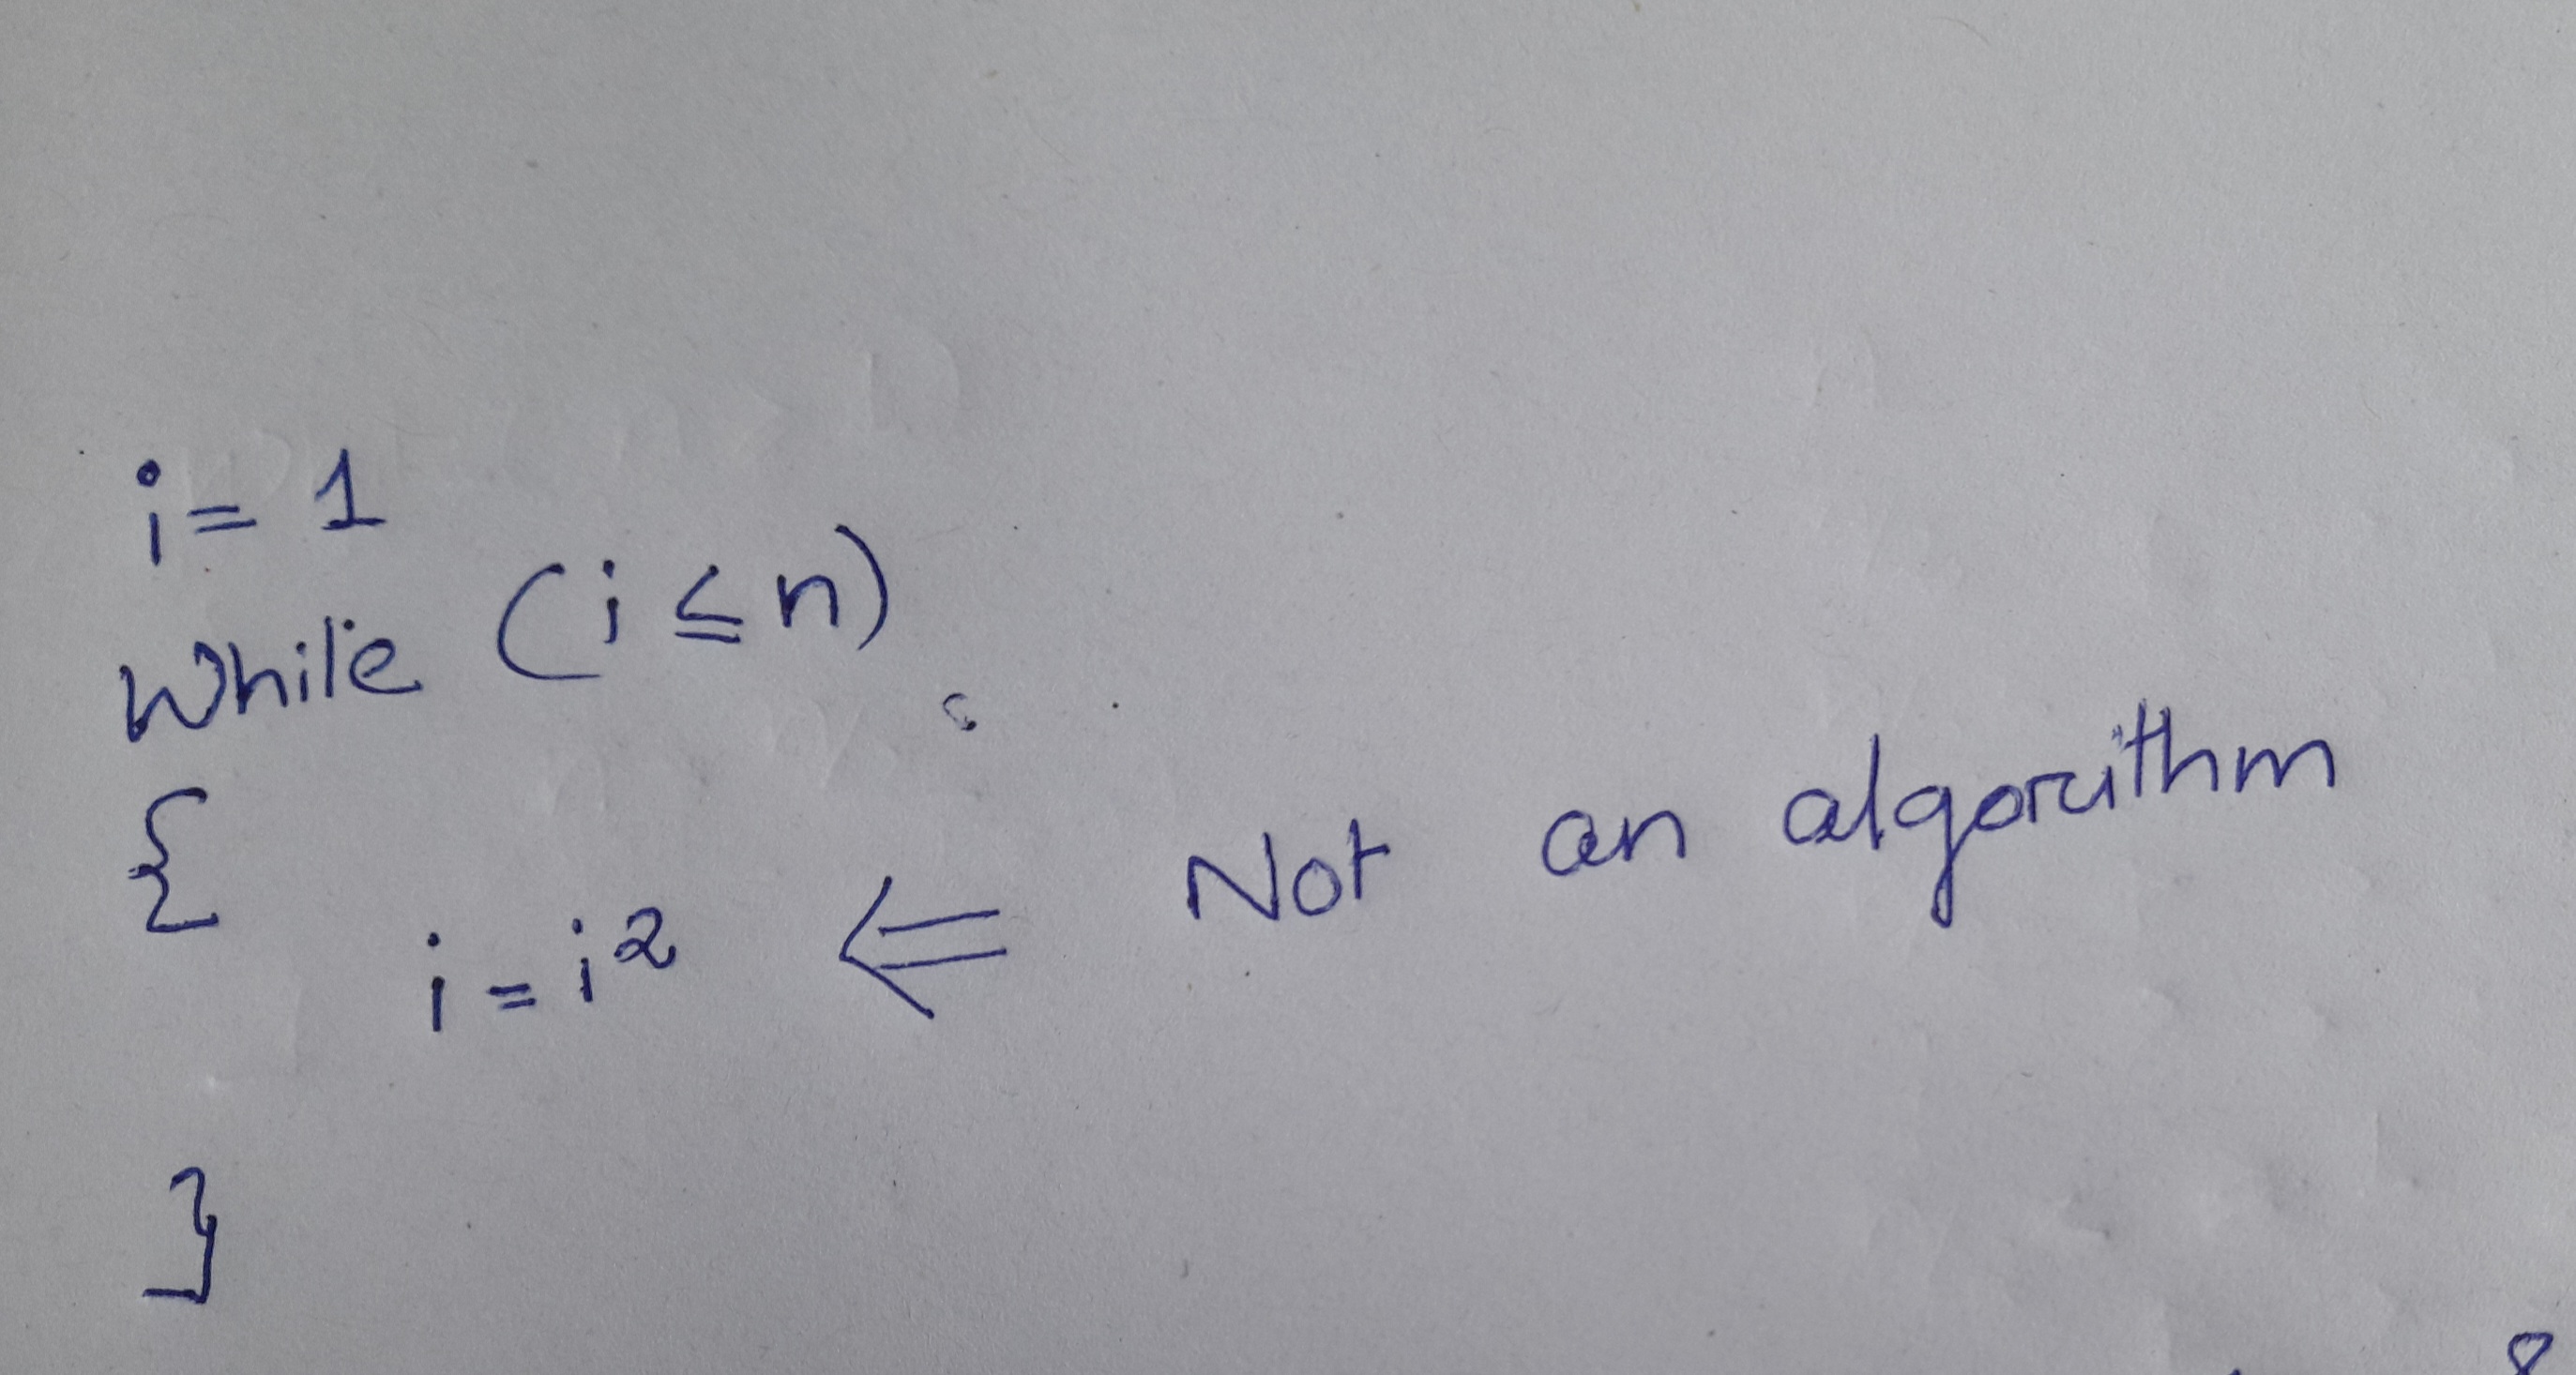 i = 1
While (i ≤ n)
{
i = i² ⇐ Not an algorithm
}